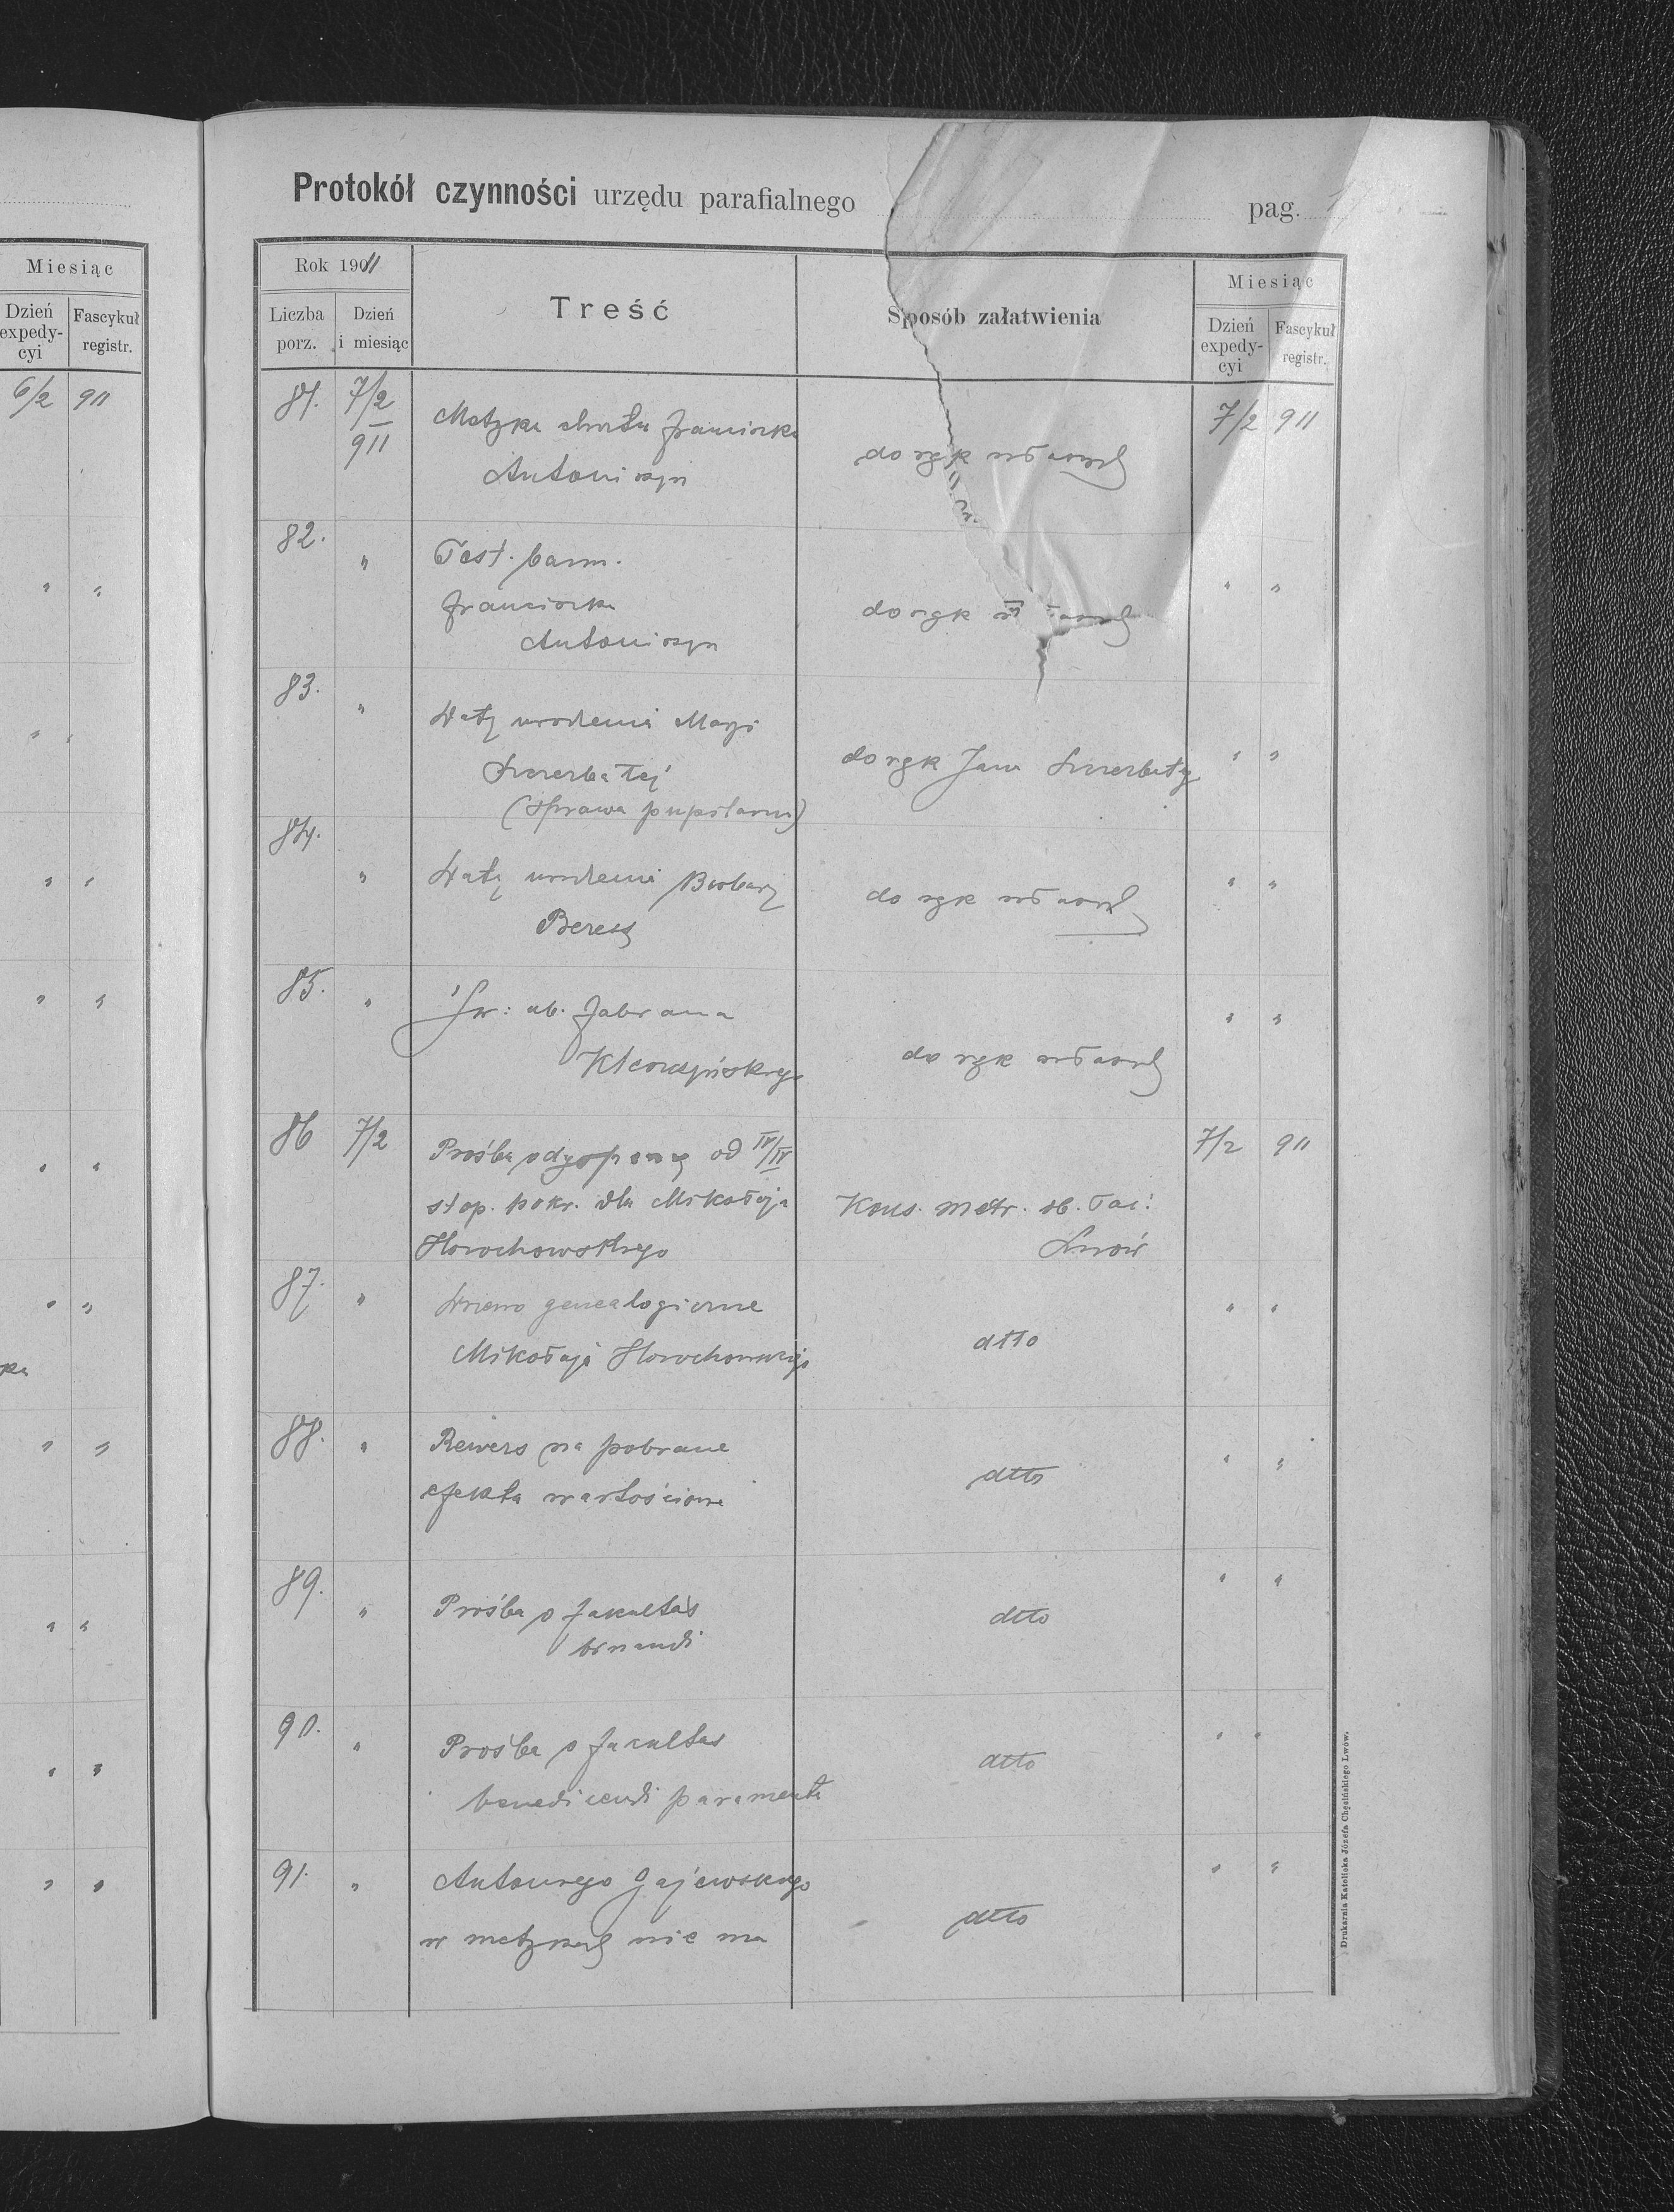 Miesiąc
Dzień expedycyi
Fascykuł registr.
6/2 911
" "
" "
" "
" "
" "
" "
" "
" "
" "
" "
Protokół czynności urzędu parafialnego
pag.
Rok 1911
Liczba porz.
Dzień i miesiąc
Treść
Sposób załatwienia
Miesiąc
Dzień expedycyi
Fascykuł registr.
81. 7/2 911
Metryka chrztu Franciszka
Antoniszyn
do rąk własnych
7/2 911
82. "
Test. bann.
Franciszka
Antoniszyn
do rąk
" "
83. "
Daty urodzenia Maryi
Szczerbatej
(sprawa pupilarna)
do rąk Jana Szczerbaty
" "
84. "
Daty urodzenia Barbary
do rąk własnych
" "
85. "
Św: ub.
do rąk własnych
" "
86 7/2
Prośba o dyspensę od IV/IV
stop. pokr. dla Mikołaja
Horochowskiego
Kons. metr. ob. łać:
Lwów
7/2 911
87. "
Drzewo genealogiczne
Mikołaja Horochowskiego
dtto
" "
88. "
Rewers na pobrane
efekta wartościowe
dtto
" "
89. "
Prośba o fakultas
binandi
dtto
" "
90. "
Prośba o facultas
benedicendi paramenta
dtto
" "
91. "
Antoniego Gajewskiego
w metrykach nie ma
dtto
" "
Drukarnia Katolicka Józefa Chęcińskiego Lwów.